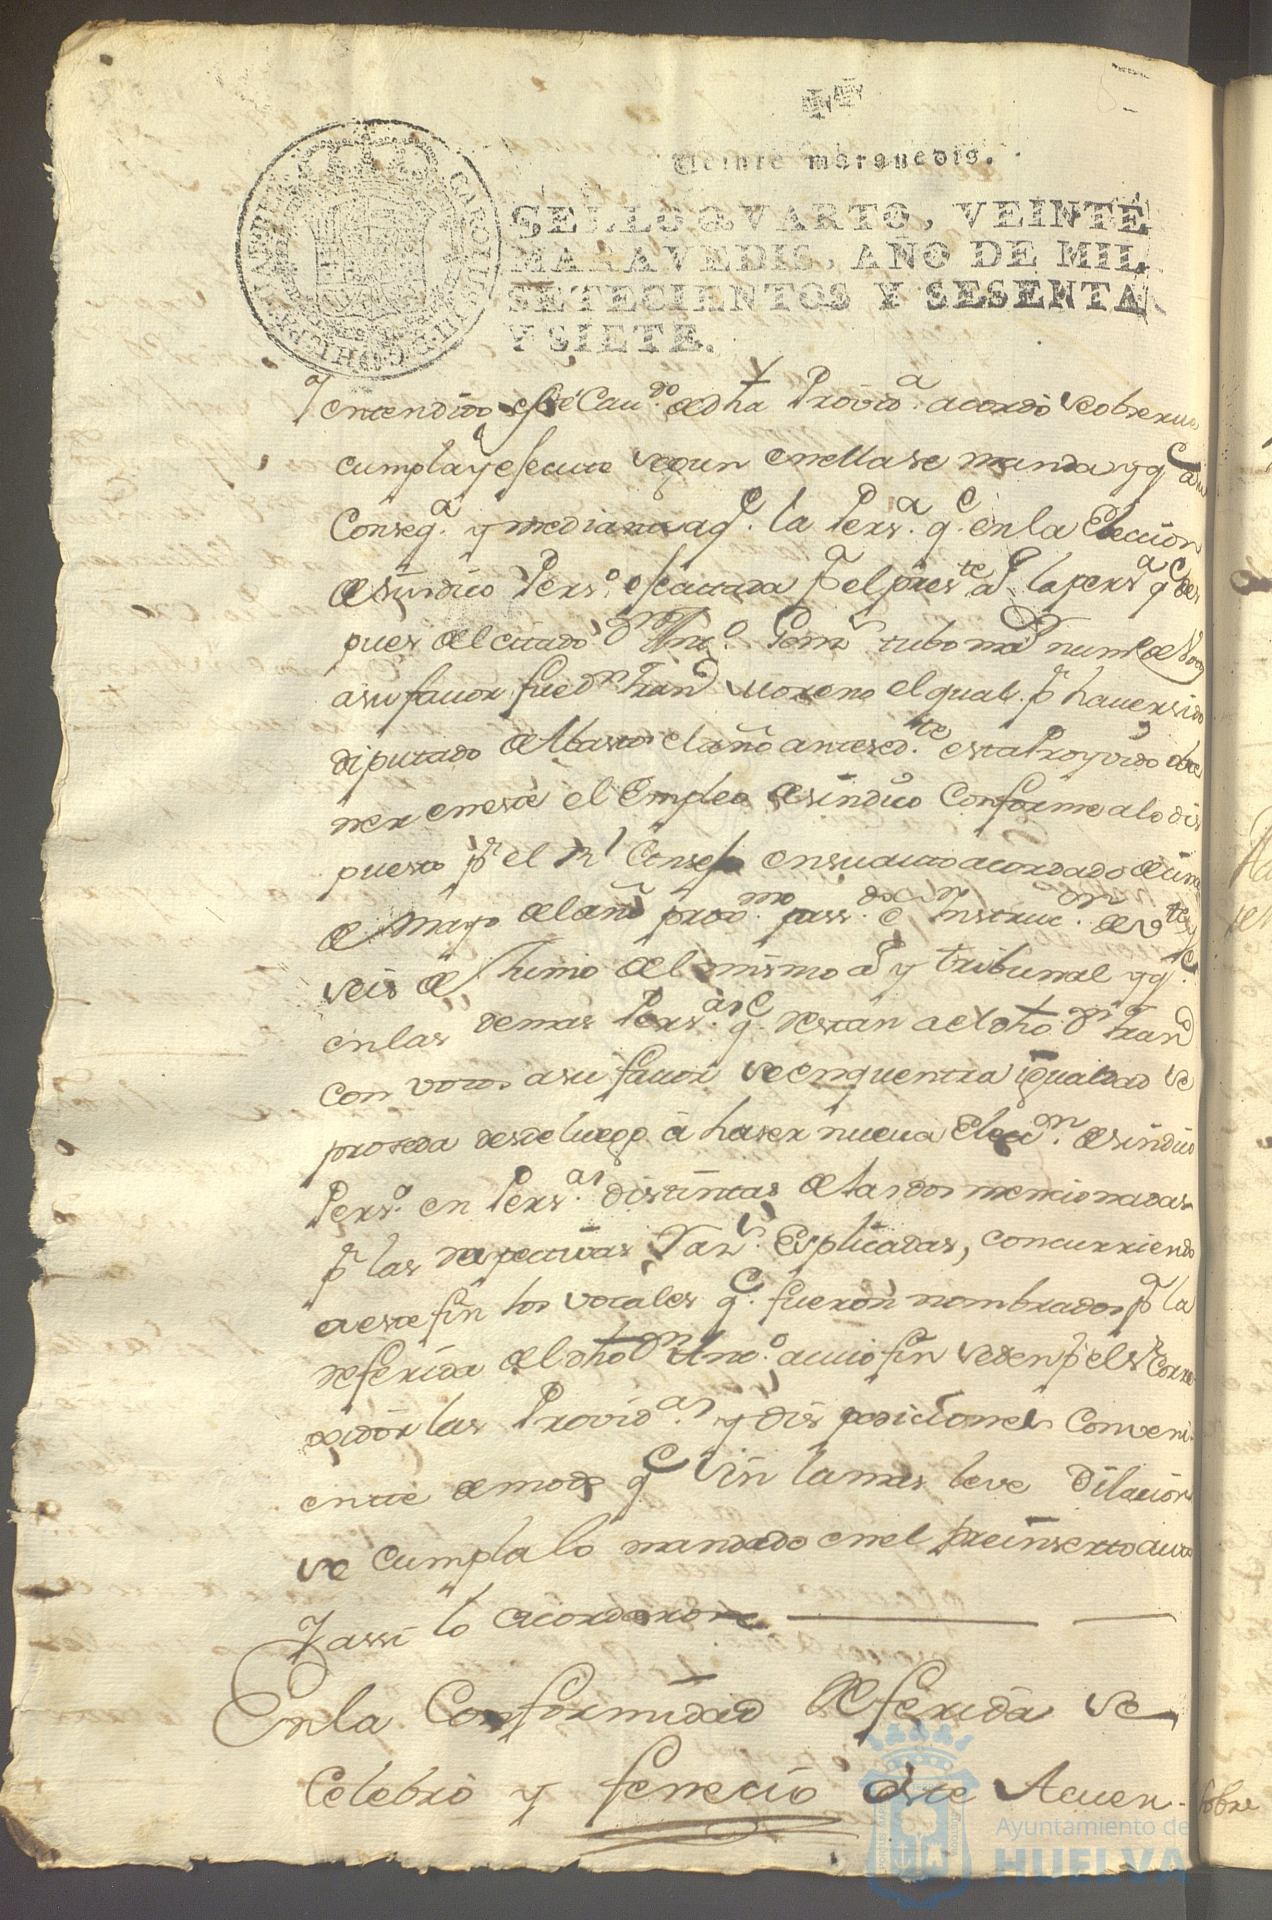 Veinte maravedis.
SELLO QVARTO, VEINTE
MARAVEDIS, AÑO DE MIL
SETECIENTOS Y SESENTA
Y SIETE.
CAROLUS III D G HISPANIAR
Y entendido este Cau.do de dha Provid.a acordó se obserue
cumpla y execute segun en ella se manda y q.e en
Conseq.a y mediante a q.e la Pers.a q.e en la Eleccion
de sindico Pers.o efectuada p.r el pres.te a.o la pers.a q.e des
pues del citado d.n Ant.o tubo ma.r num.o de Votos
a su fauor fue d.n Fran.co Moreno el qual p.r hauer sido
diputado de Abastos el año anteced.te esta Proyvido obte
ner en este el Empleo de sindico Conforme a lo dis
puesto p.r el R.l Consejo en su auto acordado de cinco
de Mayo del año prox.mo pass.do e Instruc.on de v.te y
seis de Junio del mismo a.o y tribunal y q.e
en las demas Pers.as q.e restan a el dho d.n Fran.co
con votos a su fauor se enquentra igualdad se
proseda desde luego à haser nueua Elecc.on de sindico
Pers.o en Pers.as distintas de las dos mencionadas
p.r las respectivas Esplicadas, concurriendo
a este fin los vocales q.e fueron nombrados p.a la
referida del dho d.n Ant.o a cuio fin se den p.r el s.r Corre
xidor las Provid.as y disposiciones Conveni
ente de modo q.e sin la mas leve Dilacion
se cumpla lo mandado en el preinserto auto
Y assi lo acordaron
En la Conformidad Referida se
Celebró y fenecio este Acuer-
sobre
Ayuntamiento de
HUELVA